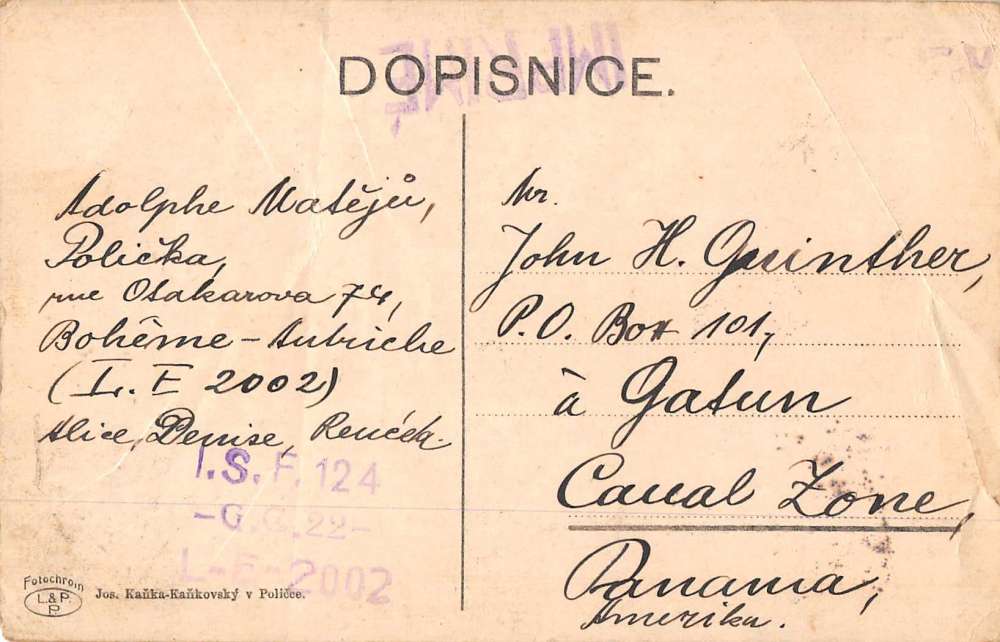 DOPISNICE.
Adolphe Matějů,
Polička,
rue Otakarova 74,
Bohême - Autriche
(L. E 2002)
Alice, Denise,
I.S.F. 124
-G.G.22-
L-E-2002
Fotochrom
L.&P.
P.
Jos. Kaňka-Kaňkovský v Poličce.
Mr.
John H. Guinther,
P.O. Box 101,
à Gatun
Canal Zone,
Panama,
Amerika.